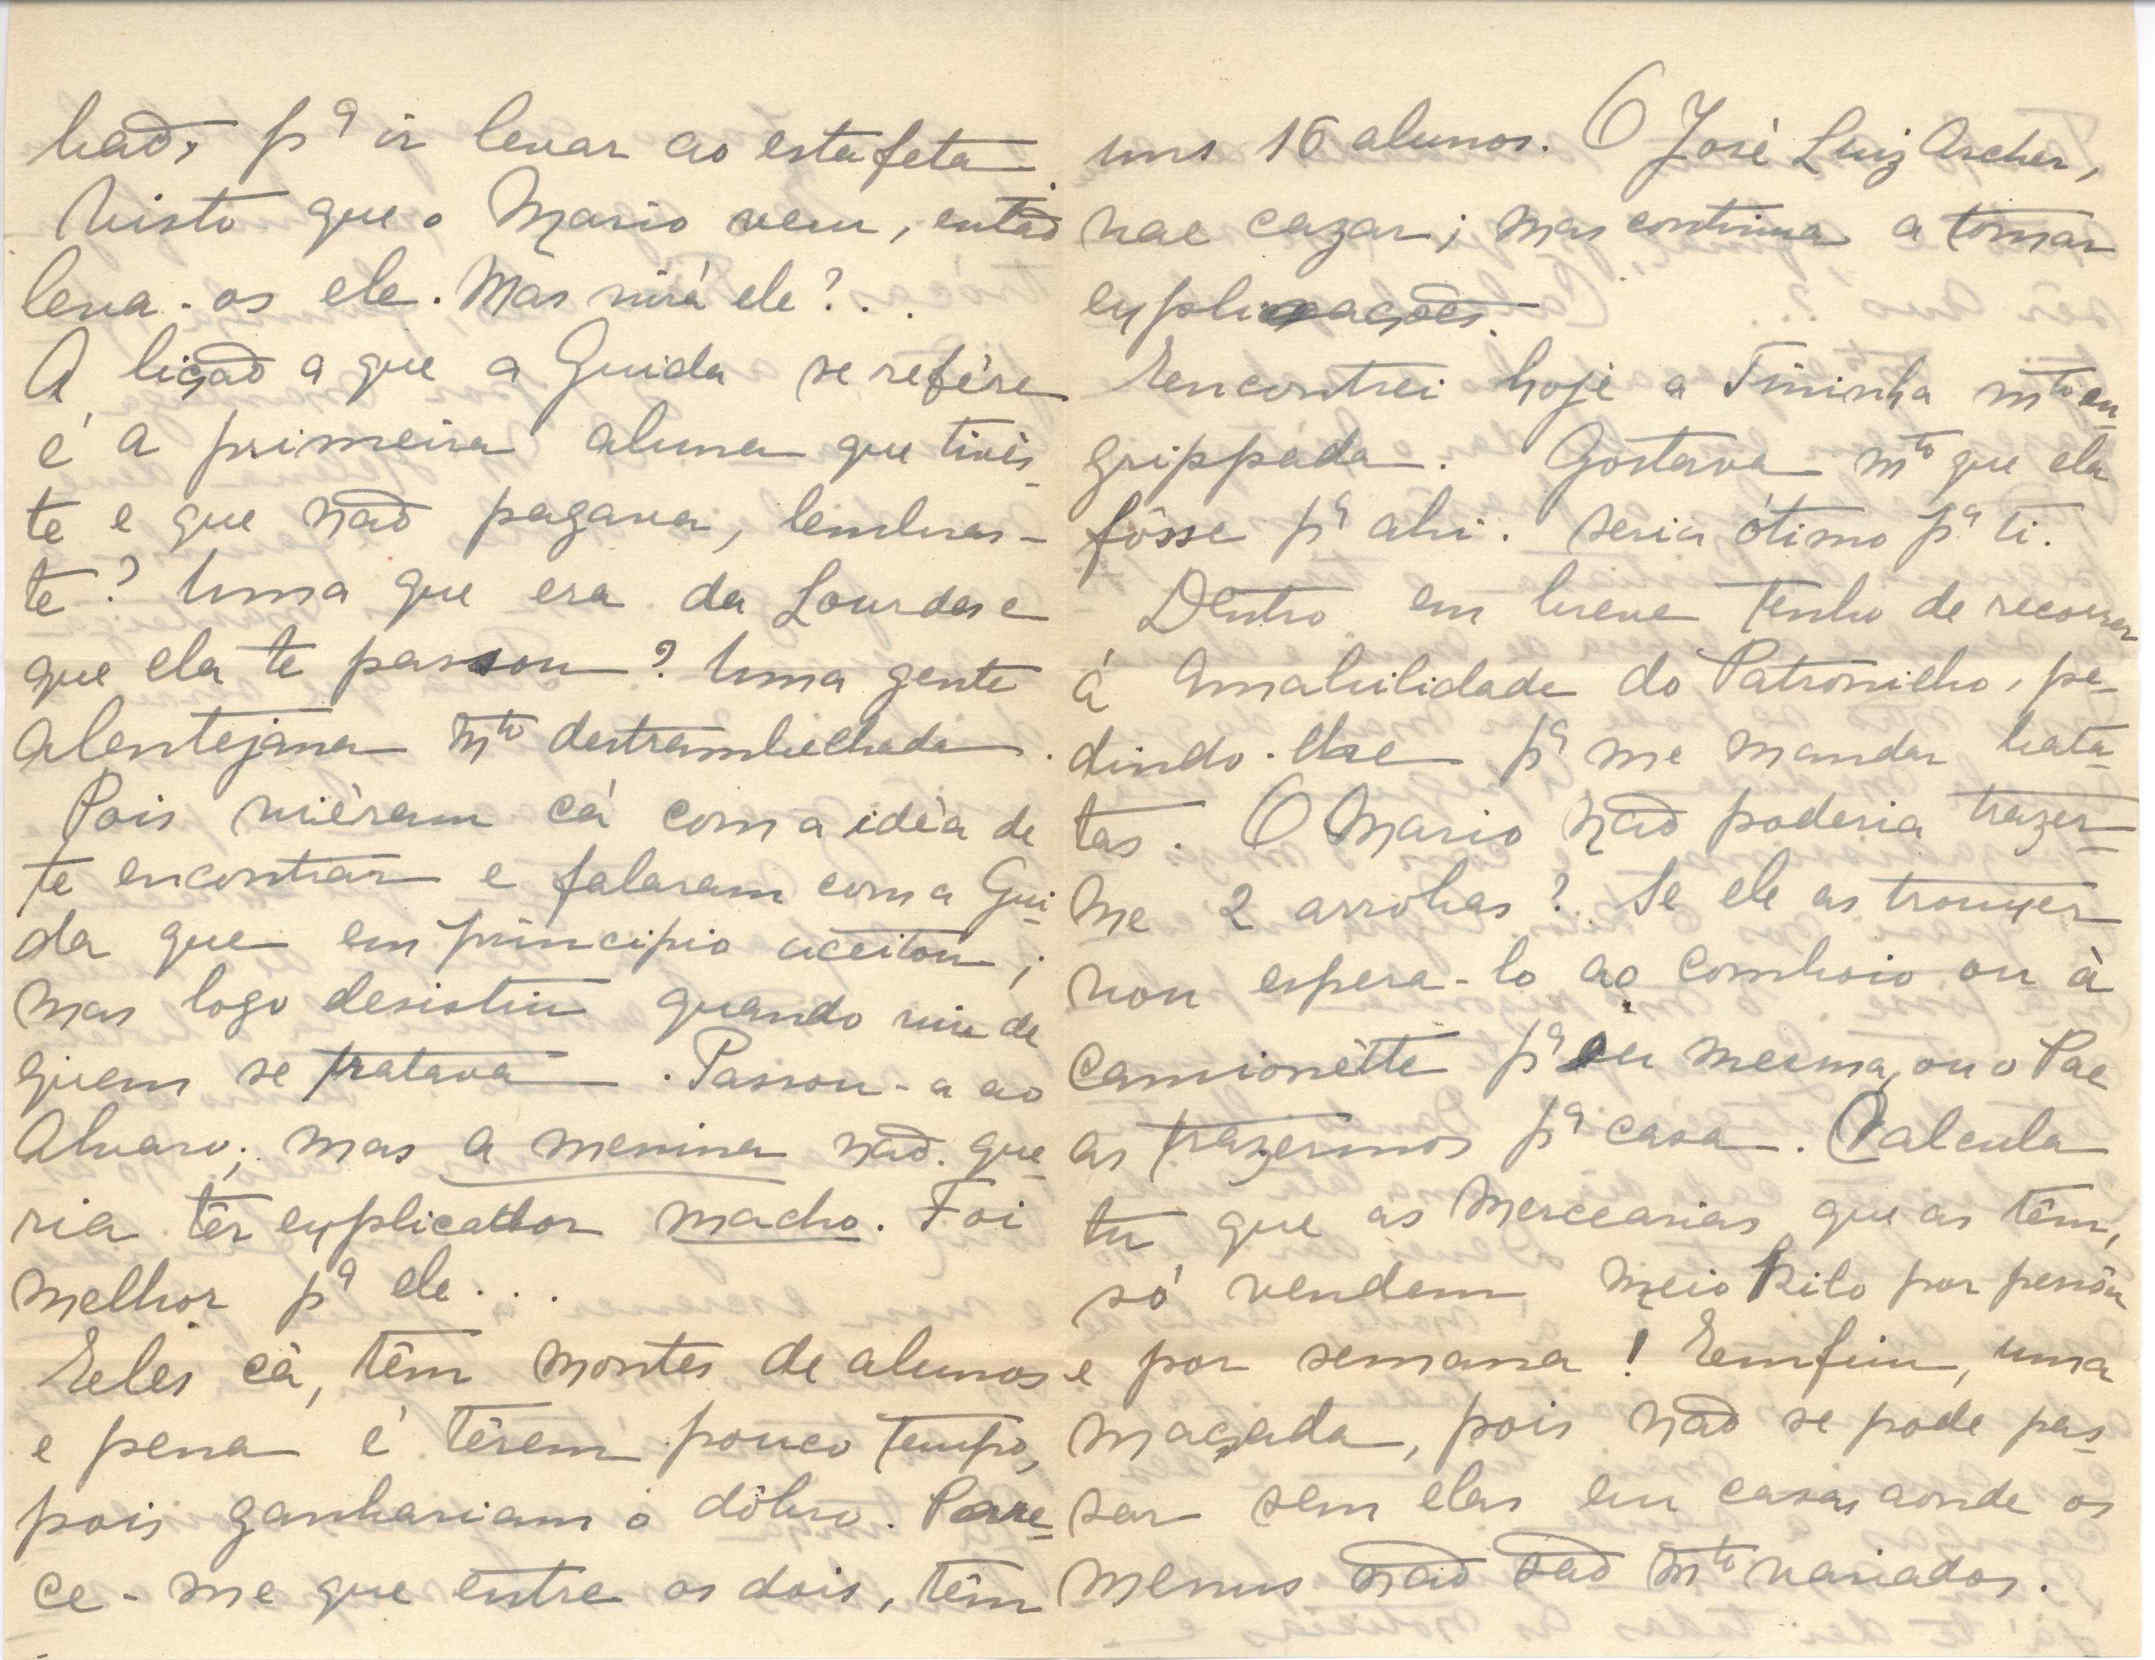 hão, pª ir levar ao estafeta.
Visto que o Mario vem, então
leva-os ele. Mas virá ele?..
A lição a que a Guida se refére
é a primeira aluna que tivés-
te e que não pagava, lembras-
te? Uma que era da Lourdes e
que ela te passou? Uma gente
alentejana mto destrambelhada.
Pois viéram cá com a idéa de
te encontrar e falaram com a Gui-
da que em principio aceitou;
mas logo desistiu quando viu de
quem se tratava. Passou-a ao
Alvaro; mas a menina não que-
ria têr explicador macho. Foi
melhor pª ele...
Eeles cá, têm montes de alunos
e pena é têrem pouco tempo,
pois ganhariam o dôbro. Pare-
ce-me que entre os dois, têm
uns 16 alunos. O José Luiz Archer,
vae cazar; mas continua a tomar
explicações.
Eencontrei hoje a Fininha mto en-
grippada. Gostava mto que ela
fôsse pª ahi. Seria ótimo pª ti.
Dentro em breve tenho de recorrer
á amabilidade do Patronilho, pe-
dindo-lhe pª me mandar bata-
tas. O Mario não poderia trazer-
me 2 arrobas? Se ele as trouxer
vou espera-lo ao comboio ou à
camionétte pª eu mesma, ou o Pae
as trazermos pª casa. Calcula
tu que as mercearias que as têm,
só vendem meio kilo por pessôa
e por semana! Eemfim, uma
maçada, pois não se pode pas-
sar sem elas em casas aonde os
menus não são mto variados.